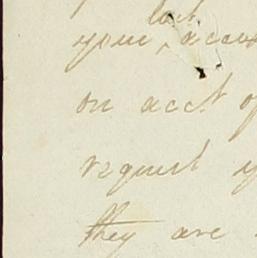 last
your, accou
on acct of
request y
they are